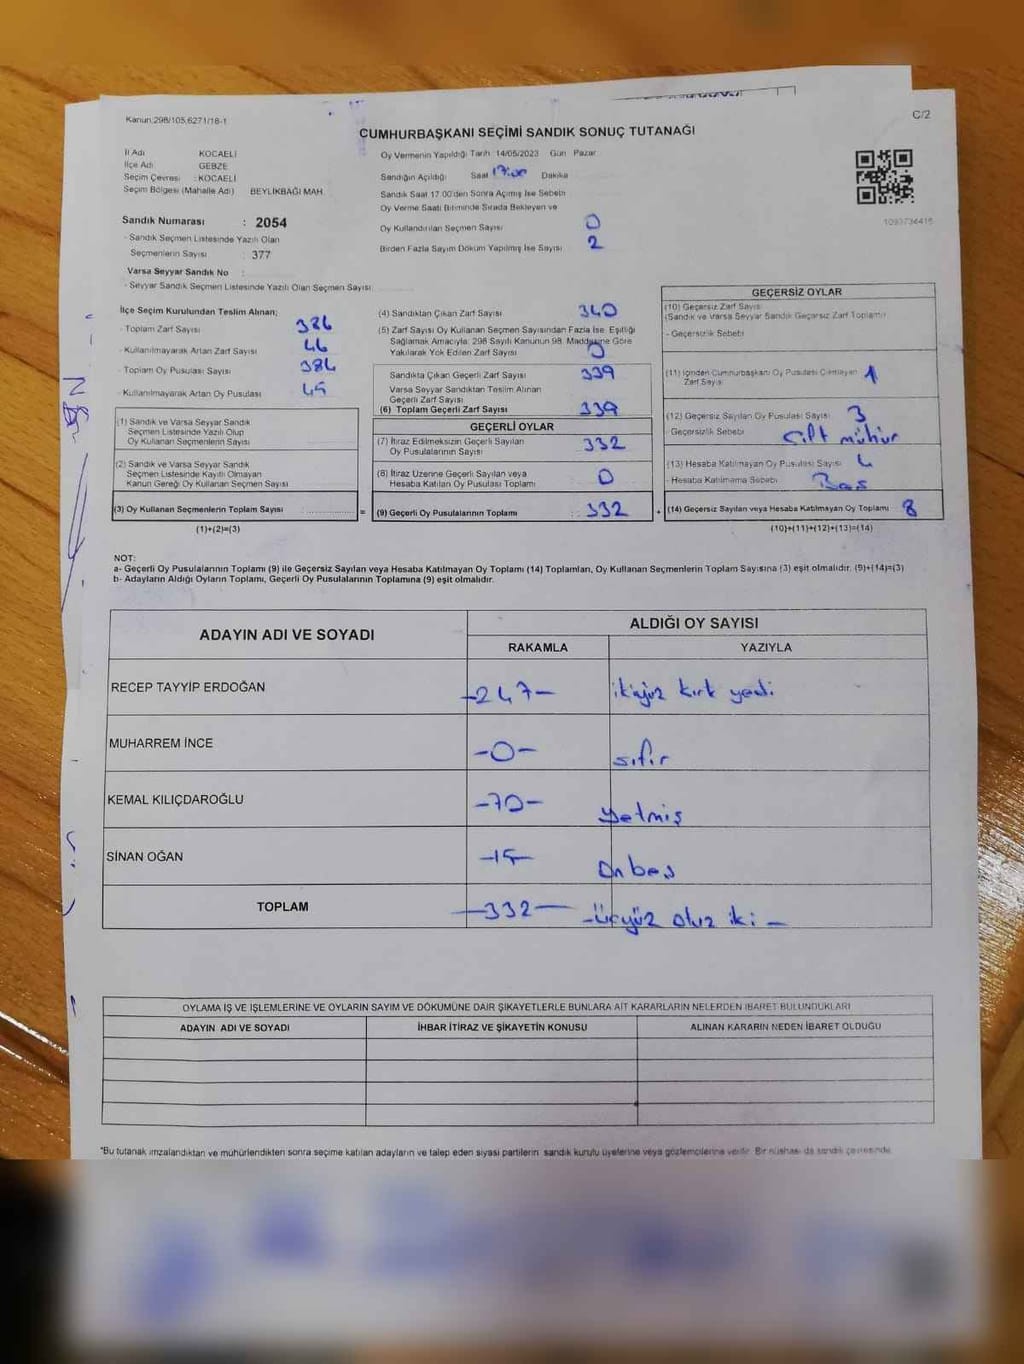 Kanun:298/105,6271/18-1
C/2
CUMHURBAŞKANI SEÇİMİ SANDIK SONUÇ TUTANAĞI
İl Adı KOCAELİ
İlçe Adı GEBZE
Seçim Çevresi : KOCAELİ
Seçim Bölgesi (Mahalle Adı) BEYLİKBAĞI MAH.
Sandık Numarası : 2054
- Sandık Seçmen Listesinde Yazılı Olan
Seçmenlerin Sayısı : 377
Varsa Seyyar Sandık No :
- Seyyar Sandık Seçmen Listesinde Yazılı Olan Seçmen Sayısı:
Oy Vermenin Yapıldığı Tarih 14/05/2023 Gün Pazar
Sandığın Açıldığı Saat 17:00 Dakika
Sandık Saat 17.00'den Sonra Açımış İse Sebebi
Oy Verme Saati Bitiminde Sırada Bekleyen ve
Oy Kullandırılan Seçmen Sayısı 0
Birden Fazla Sayım Döküm Yapılmış İse Sayısı 2
1093734415
İlçe Seçim Kurulundan Teslim Alınan;
- Toplam Zarf Sayısı 386
- Kullanılmayarak Artan Zarf Sayısı 46
- Toplam Oy Pusulası Sayısı 384
- Kullanılmayarak Artan Oy Pusulası 45
(1) Sandık ve Varsa Seyyar Sandık
Seçmen Listesinde Yazılı Olup
Oy Kullanan Seçmenlerin Sayısı
(2) Sandık ve Varsa Seyyar Sandık
Seçmen Listesinde Kayıtlı Olmayan
Kanun Gereği Oy Kullanan Seçmen Sayısı
(3) Oy Kullanan Seçmenlerin Toplam Sayısı
(1)+(2)=(3)
(4) Sandıktan Çıkan Zarf Sayısı 340
(5) Zarf Sayısı Oy Kullanan Seçmen Sayısından Fazla İse, Eşitliği
Sağlamak Amacıyla; 298 Sayılı Kanunun 98. Maddesine Göre
Yakılarak Yok Edilen Zarf Sayısı 0
Sandıkta Çıkan Geçerli Zarf Sayısı 339
Varsa Seyyar Sandıktan Teslim Alınan
Geçerli Zarf Sayısı
(6) Toplam Geçerli Zarf Sayısı 339
GEÇERLİ OYLAR
(7) İtiraz Edilmeksizin Geçerli Sayılan
Oy Pusulalarının Sayısı 332
(8) İtiraz Üzerine Geçerli Sayılan veya
Hesaba Katılan Oy Pusulası Toplamı 0
= (9) Geçerli Oy Pusulalarının Toplamı : 332
GEÇERSİZ OYLAR
(10) Geçersiz Zarf Sayısı
(Sandık ve Varsa Seyyar Sandık Geçersiz Zarf Toplamı)
- Geçersizlik Sebebi
(11) İçinden Cumhurbaşkanı Oy Pusulası Çıkmayan
Zarf Sayısı 1
(12) Geçersiz Sayılan Oy Pusulası Sayısı 3
- Geçersizlik Sebebi çift mühür
(13) Hesaba Katılmayan Oy Pusulası Sayısı 4
- Hesaba Katılmama Sebebi Boş
+ (14) Geçersiz Sayılan veya Hesaba Katılmayan Oy Toplamı 8
(10)+(11)+(12)+(13)=(14)
NOT:
a- Geçerli Oy Pusulalarının Toplamı (9) ile Geçersiz Sayılan veya Hesaba Katılmayan Oy Toplamı (14) Toplamları, Oy Kullanan Seçmenlerin Toplam Sayısına (3) eşit olmalıdır. (9)+(14)=(3)
b- Adayların Aldığı Oyların Toplamı, Geçerli Oy Pusulalarının Toplamına (9) eşit olmalıdır.
ADAYIN ADI VE SOYADI ALDIĞI OY SAYISI
RAKAMLA YAZIYLA
RECEP TAYYİP ERDOĞAN -247- ikiyüz kırk yedi
MUHARREM İNCE -0- sıfır
KEMAL KILIÇDAROĞLU -70- yetmiş
SİNAN OĞAN -15- Onbeş
TOPLAM -332- -üçyüz otuz iki -
OYLAMA İŞ VE İŞLEMLERİNE VE OYLARIN SAYIM VE DÖKÜMÜNE DAİR ŞİKAYETLERLE BUNLARA AİT KARARLARIN NELERDEN İBARET BULUNDUKLARI
ADAYIN ADI VE SOYADI İHBAR İTİRAZ VE ŞİKAYETİN KONUSU ALINAN KARARIN NEDEN İBARET OLDUĞU
*Bu tutanak imzalandıktan ve mühürlendikten sonra seçime katılan adayların ve talep eden siyasi partilerin sandık kurulu üyelerine veya gözlemcilerine verilir. Bir nüshası da sandık çevresinde